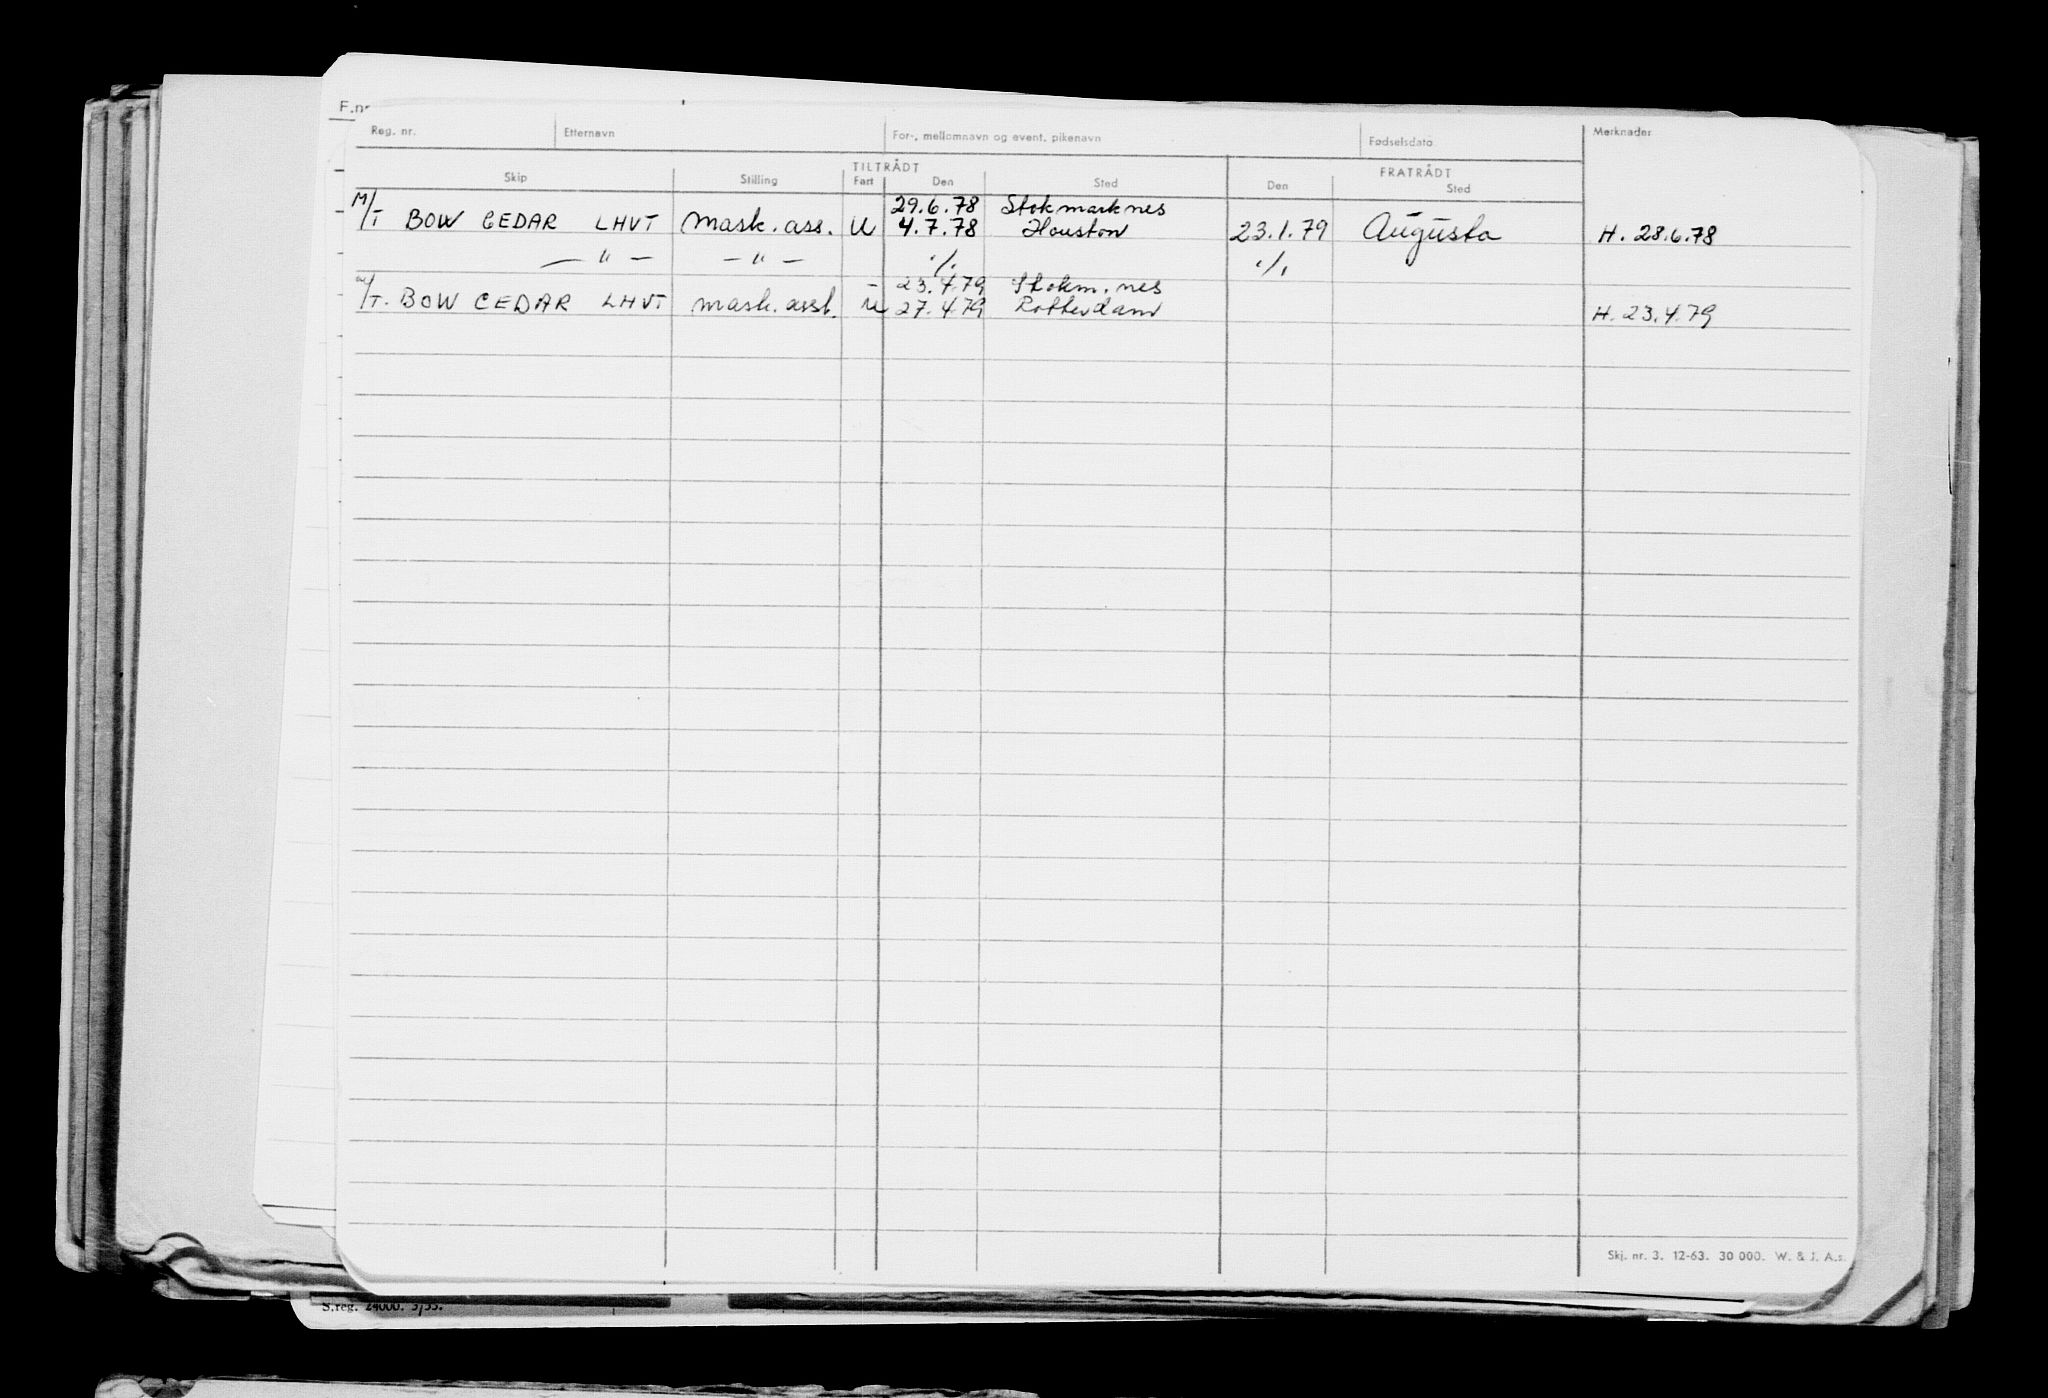 F.nr
Reg. nr. Etternavn For-, mellomnavn og event. pikenavn Fødselsdato Merknader
TILTRÅDT FRATRÅDT
Skip Stilling Fart Den Sted Den Sted
29.6.78 Stokmarknes
M/T BOW CEDAR LHVT Mask. ass. U 4.7.78 Houston 23.1.79 Augusta H. 28.6.78
— " — — " — ./. ./.
- 23.4.79 Stokm.nes
M/T. BOW CEDAR LHVT mask. asst. U 27.4.79 Rotterdam H. 23.4.79
Skj. nr. 3. 12-63. 30 000. W. & J. A.s.
S.reg. 24000. 3/53.